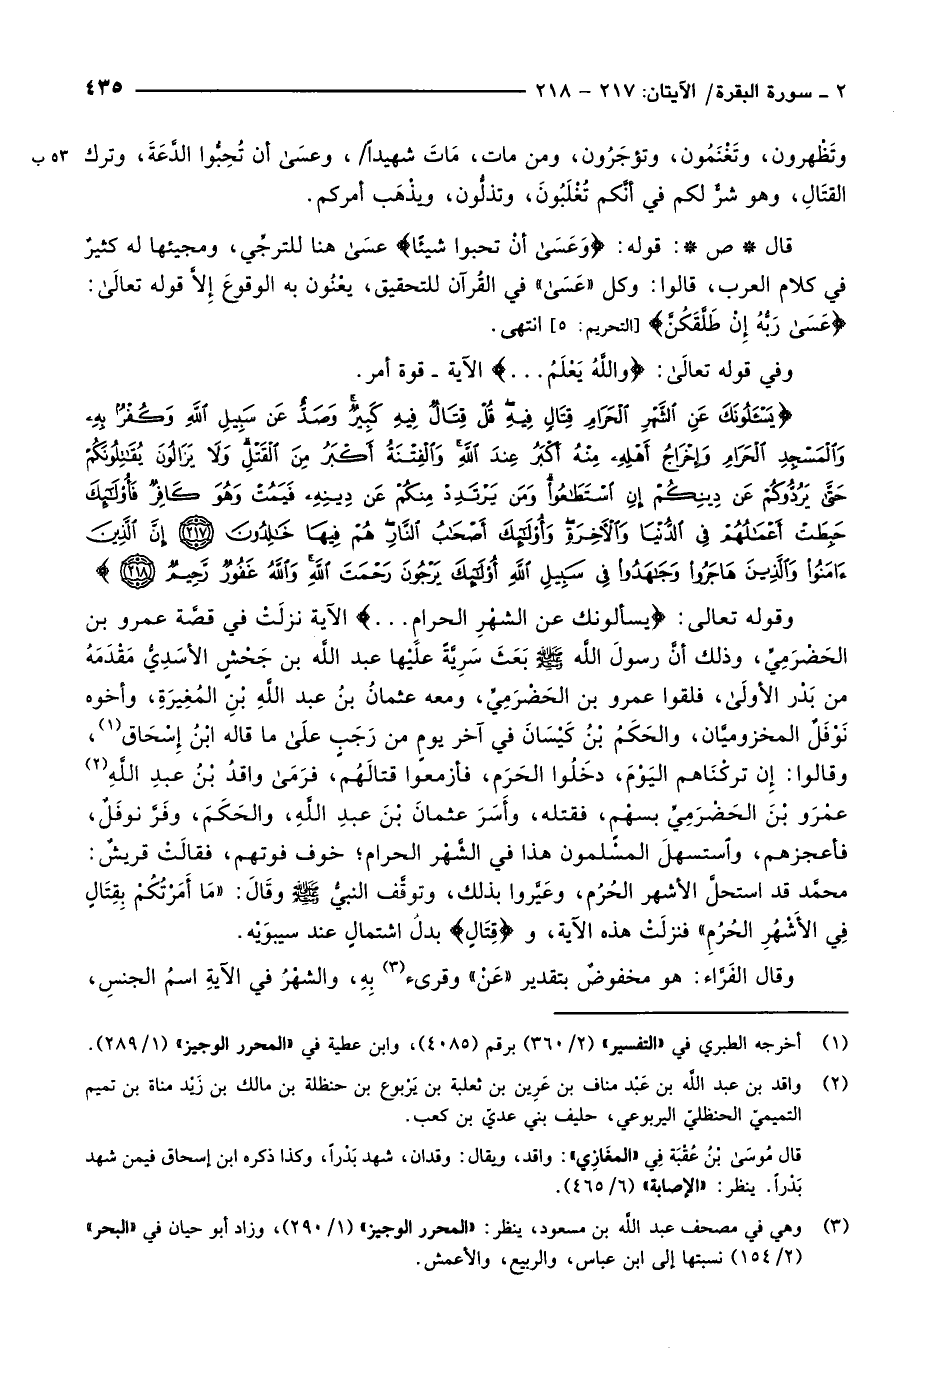 ٢ ـ سورة البقرة/ الآيتان: ٢١٧ - ٢١٨ ٤٣٥
وتَظْهرون، وتَغْنَمُون، وتؤجَرُون، ومن مات، مَاتَ شهيداً/، وعسَىٰ أن تُحِبُّوا الدَّعَةَ، وترك ٥٣ ب
القتَالِ، وهو شرٌّ لكم في أنَّكم تُغْلَبُونَ، وتذلُّون، ويذْهَب أمركم.
قال * ص *: قوله: ﴿وَعَسَىٰ أنْ تحبوا شيئًا﴾ عسَىٰ هنا للترجِّي، ومجيئها له كثيرٌ
في كلام العرب، قالوا: وكل «عَسَىٰ» في القُرآن للتحقيق، يعْنُون به الوقوعَ إِلاَّ قوله تعالَىٰ:
﴿عَسَىٰ رَبُّهُ إِنْ طَلَّقَكُنَّ﴾ [التحريم: ٥] انتهى.
وفي قوله تعالَىٰ: ﴿واللَّهُ يَعْلَمُ...﴾ الآية ـ قوة أمر.
﴿يَسْـَٔلُونَكَ عَنِ ٱلشَّهْرِ ٱلْحَرَامِ قِتَالٍ فِيهِ قُلْ قِتَالٌ فِيهِ كَبِيرٌ وَصَدٌّ عَن سَبِيلِ ٱللَّهِ وَكُفْرٌ بِهِۦ
وَٱلْمَسْجِدِ ٱلْحَرَامِ وَإِخْرَاجُ أَهْلِهِۦ مِنْهُ أَكْبَرُ عِندَ ٱللَّهِ وَٱلْفِتْنَةُ أَكْبَرُ مِنَ ٱلْقَتْلِ وَلَا يَزَالُونَ يُقَٰتِلُونَكُمْ
حَتَّىٰ يَرُدُّوكُمْ عَن دِينِكُمْ إِنِ ٱسْتَطَٰعُوا۟ وَمَن يَرْتَدِدْ مِنكُمْ عَن دِينِهِۦ فَيَمُتْ وَهُوَ كَافِرٌ فَأُو۟لَٰٓئِكَ
حَبِطَتْ أَعْمَٰلُهُمْ فِى ٱلدُّنْيَا وَٱلْءَاخِرَةِ وَأُو۟لَٰٓئِكَ أَصْحَٰبُ ٱلنَّارِ هُمْ فِيهَا خَٰلِدُونَ (٢١٧) إِنَّ ٱلَّذِينَ
ءَامَنُوا۟ وَٱلَّذِينَ هَاجَرُوا۟ وَجَٰهَدُوا۟ فِى سَبِيلِ ٱللَّهِ أُو۟لَٰٓئِكَ يَرْجُونَ رَحْمَتَ ٱللَّهِ وَٱللَّهُ غَفُورٌ رَّحِيمٌ (٢١٨)﴾
وقوله تعالى: ﴿يسألونك عن الشهْرِ الحرام...﴾ الآية نزلَتْ في قصَّة عمرو بن
الحَضْرَمِيِّ، وذلك أنَّ رسولَ الله ﷺ بَعَثَ سَرِيَّةً علَيْها عبد الله بن جَحْشٍ الأسَدِيُّ مَقْدَمَهُ
من بَدْر الأولَىٰ، فلقوا عمرو بن الحَضْرَمِيِّ، ومعه عثمانُ بنُ عبد اللَّهِ بْنِ المُغِيرَةِ، وأخوه
نَوْفَلٌ المخزوميَّان، والحكَمُ بْنُ كَيْسَانَ في آخر يومٍ من رَجَبٍ علَىٰ ما قاله ابْنُ إِسْحَاق(١)،
وقالوا: إن تركْنَاهم اليَوْمَ، دخَلُوا الحَرَم، فأزمعوا قتالَهُم، فرَمَىٰ واقدُ بْنُ عبدِ اللَّهِ(٢)
عمْرَو بْنَ الحَضْرَمِيِّ بسهْمٍ، فقتله، وأَسَرَ عثمانَ بْنَ عبدِ اللَّهِ، والحكَمَ، وفَرَّ نوفَلٌ،
فأعجزهم، وٱستسهلَ المسْلمون هذا في الشَّهْر الحرام؛ خوف فوتهم، فقالَتْ قريشٌ:
محمَّد قد استحلَّ الأشهر الحُرُم، وعَيَّروا بذلك، وتوقَّف النبيُّ ﷺ وقَالَ: «مَا أَمَرْتُكُمْ بِقِتَالٍ
فِي الأَشْهُرِ الحُرُمِ» فنزلَتْ هذه الآية، و ﴿قِتَالٍ﴾ بدلُ اشتمالٍ عند سيبوَيْه.
وقال الفَرَّاء: هو مخفوضٌ بتقدير «عَنْ» وقرىء(٣) بِهِ، والشهْرُ في الآيةِ اسمُ الجنسِ،
(١) أخرجه الطبري في «التفسير» (٢/ ٣٦٠) برقم (٤٠٨٥)، وابن عطية في «المحرر الوجيز» (١/ ٢٨٩).
(٢) واقد بن عبد اللَّه بن عَبْد مناف بن عَرِين بن ثعلبة بن يَرْبوع بن حنظلة بن مالك بن زَيْد مناة بن تميم
التميميّ الحنظليّ اليربوعي، حليف بني عديّ بن كعب.
قال مُوسَىٰ بْنُ عُقْبَة فِي «المغَازِي»: واقد، ويقال: وقدان، شهد بَدْراً، وكذا ذكره ابن إسحاق فيمن شهد
بَدْراً. ينظر: «الإصابة» (٦/ ٤٦٥).
(٣) وهي في مصحف عبد اللَّه بن مسعود، ينظر: «المحرر الوجيز» (١/ ٢٩٠)، وزاد أبو حيان في «البحر»
(٢/ ١٥٤) نسبتها إلى ابن عباس، والربيع، والأعمش.